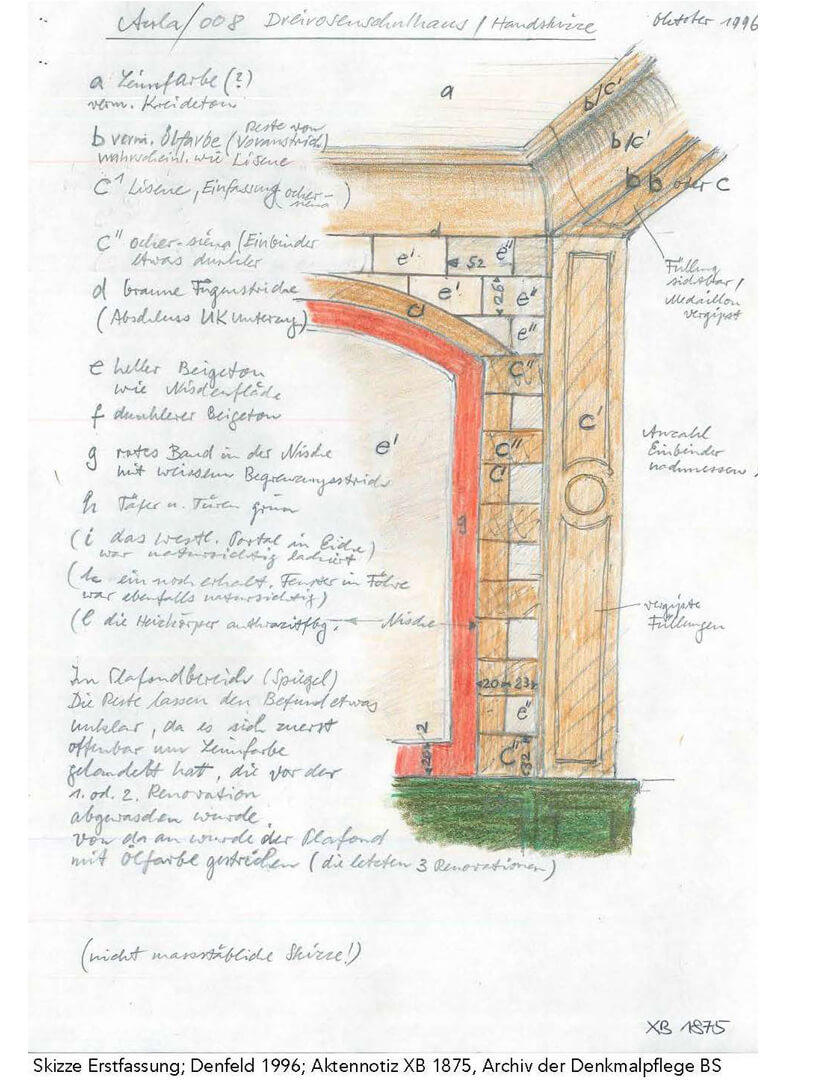 Aula/008 Dreirosenschulhaus / Handskizze
Oktober 1996
a Leimfarbe (?)
verm. Kreideton
b verm. Ölfarbe (Reste von Voranstrich)
wahrscheinl. wie Lisene
C' Lisene, Einfassung ocker-siena)
C'' ocker-siena (Einbinder
etwas dunkler
d braune Fugenstriche
(Abschluss UK Unterzug)
e heller Beigeton
wie Nischenfläche
f dunklerer Beigeton
g rotes Band in der Nische
mit weissem Begrenzungsstrich
h Täfer u. Türen grün
(i das westl. Portal in Eiche)
war natursichtig lackiert
(k ein noch erhalt. Fenster in Föhre
war ebenfalls natursichtig)
(l die Heizkörper anthrazitfbg.
Nische
Im Plafondbereich (Spiegel)
Die Reste lassen den Befund etwas
unklar, da es sich zuerst
offenbar um Leimfarbe
gehandelt hat, die vor der
1. od. 2. Renovation
abgewaschen wurde
von da an wurde der Plafond
mit Ölfarbe gestrichen (die letzten 3 Renovationen)
(nicht massstäbliche Skizze!)
a
b/c'
b/c'
b b oder C
d
e'
52
e''
e'
26
e''
c'
e''
C''
C''
C'
C'
e'
g
20
23
e''
C''
32
2
Füllung
sichtbar /
Medaillon
vergipst
Anzahl
Einbinder
nachmessen
vergipste
Füllungen
XB 1875
Skizze Erstfassung; Denfeld 1996; Aktennotiz XB 1875, Archiv der Denkmalpflege BS